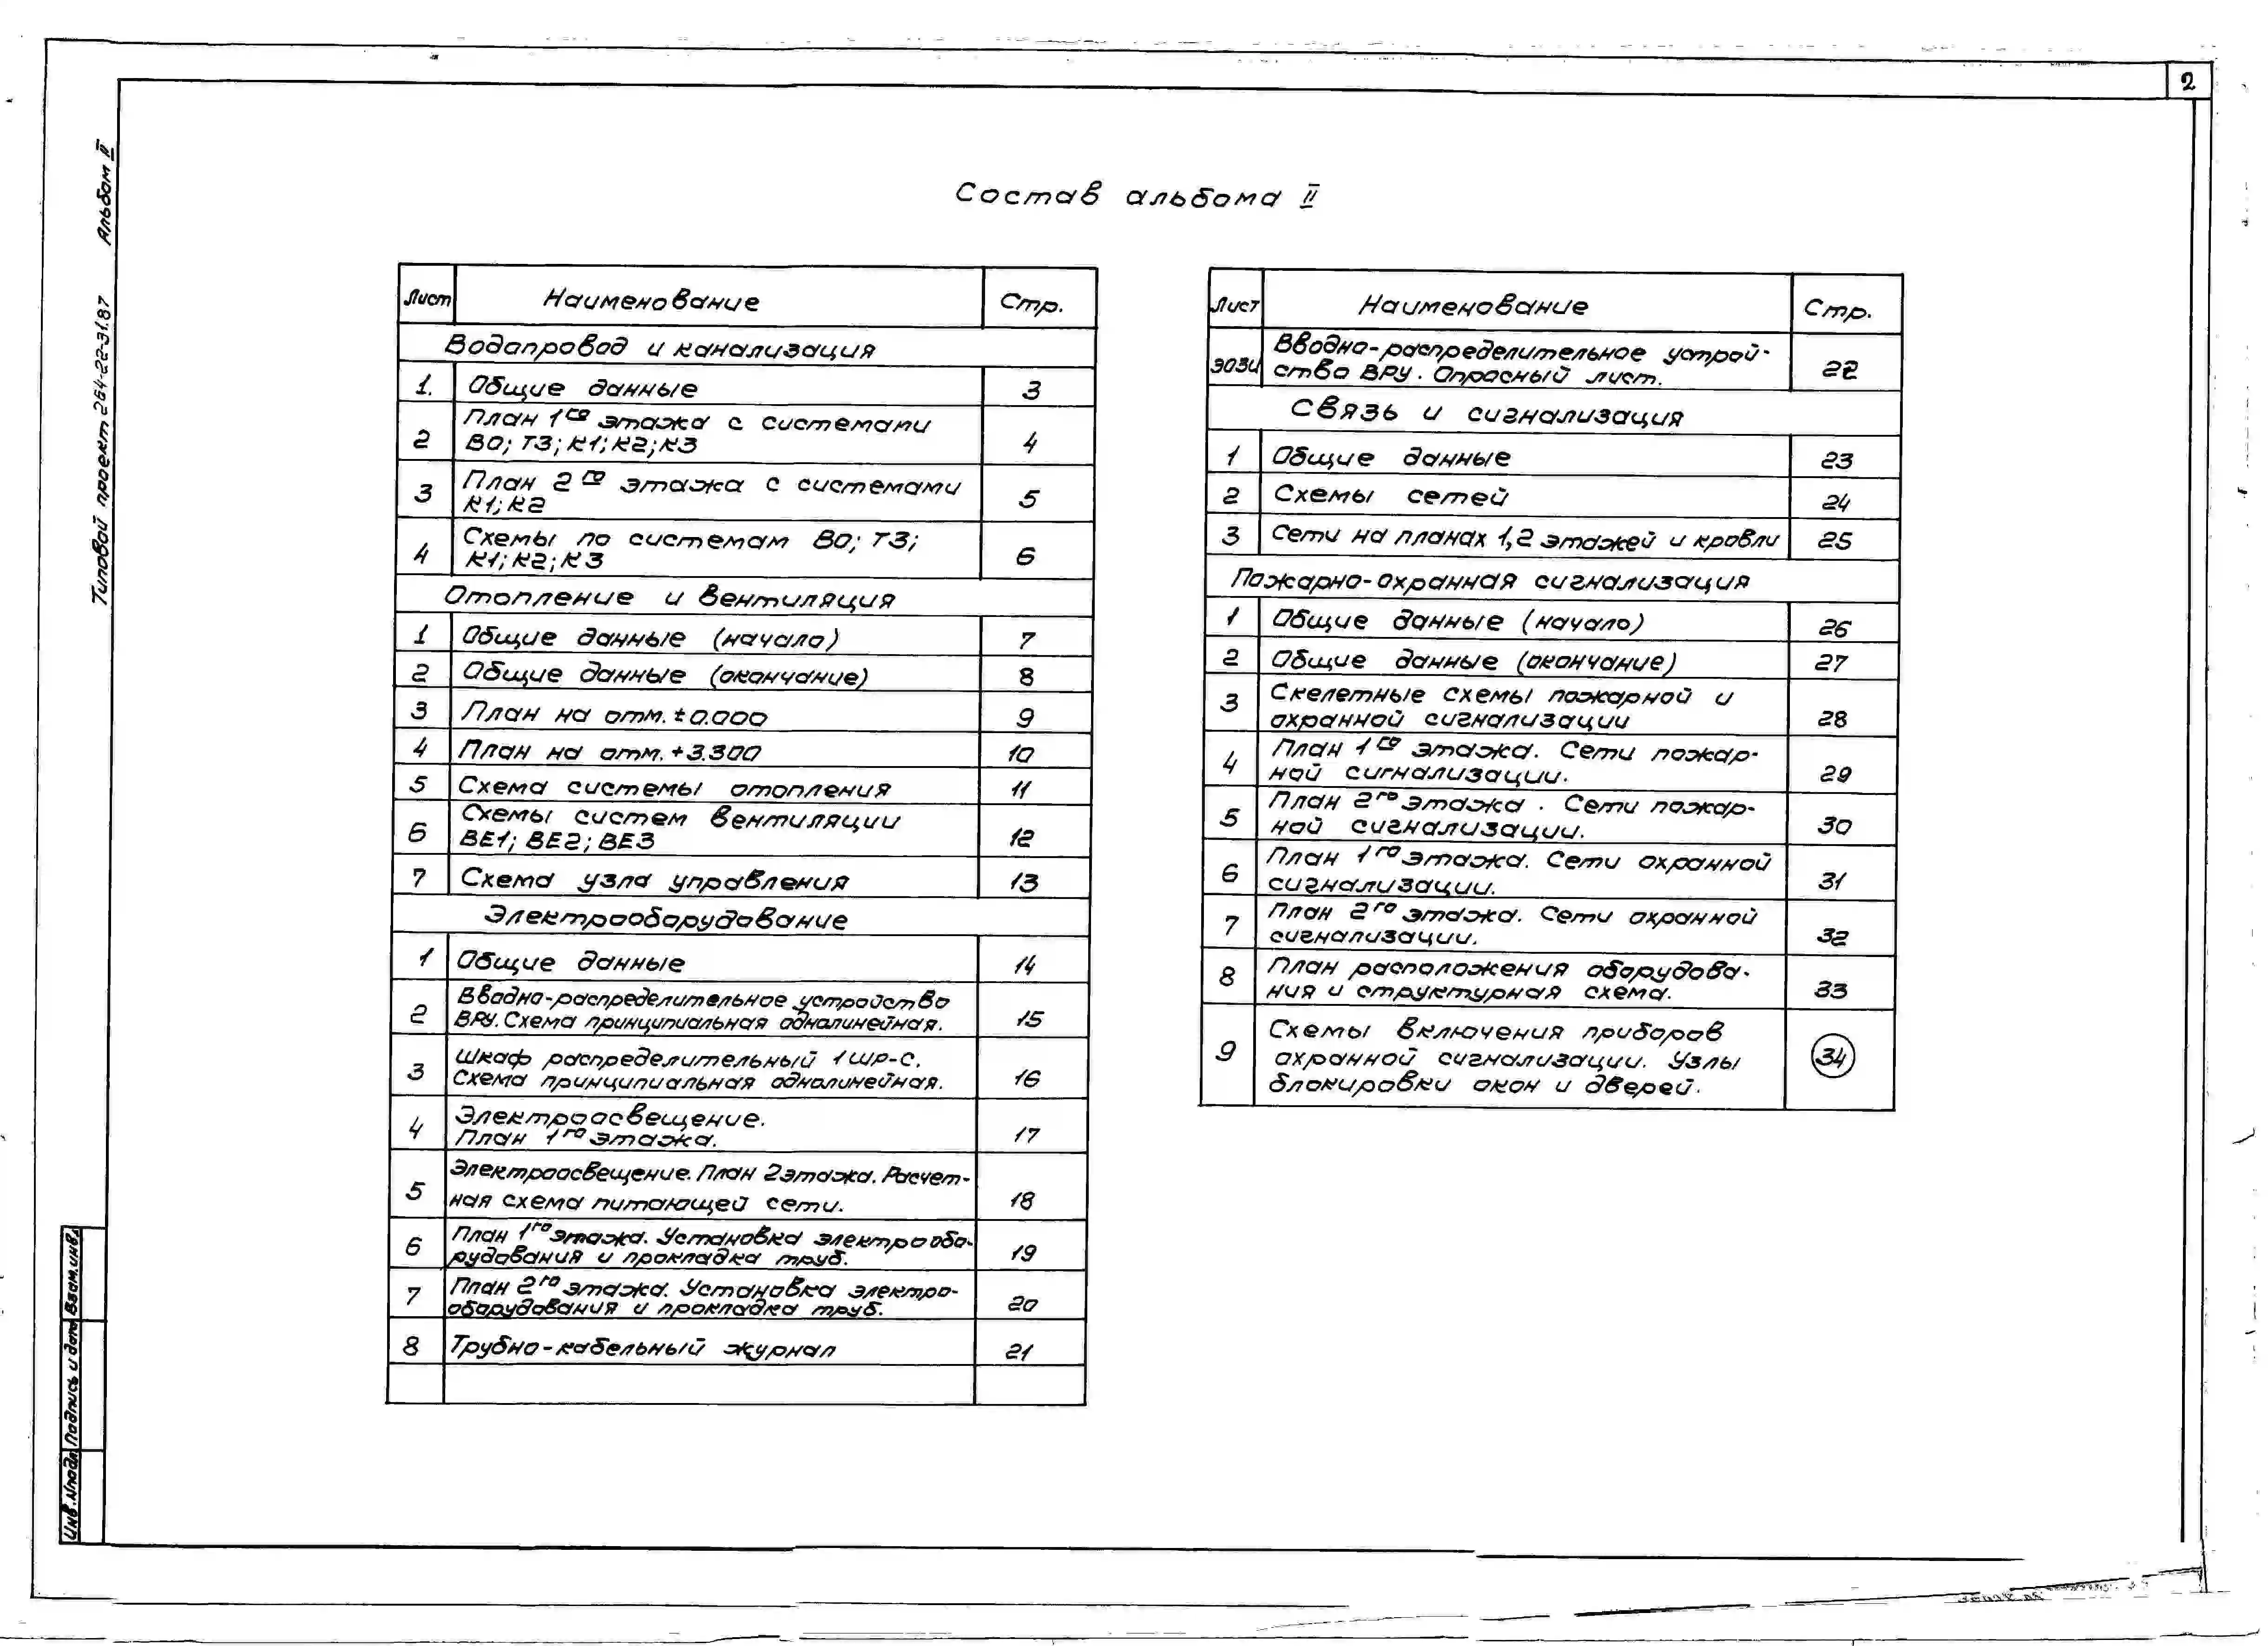 2
Типовой проект 264-22-31.87 Альбом II
Состав альбома II
Лист Наименование Стр.
Водопровод и канализация
1. Общие данные 3
План 1го этажа с системами
2 В0; Т3; К1; К2; К3 4
3 План 2го этажа с системами 5
К1; К2
Схемы по системам В0; Т3;
4 К1; К2; К3 6
Отопление и вентиляция
1 Общие данные (начало) 7
2 Общие данные (окончание) 8
3 План на отм. ±0.000 9
4 План на отм. +3.300 10
5 Схема системы отопления 11
Схемы систем вентиляции
6 ВЕ1; ВЕ2; ВЕ3 12
7 Схема узла управления 13
Электрооборудование
1 Общие данные 14
Вводно-распределительное устройство
2 ВРУ. Схема принципиальная однолинейная. 15
Шкаф распределительный 1ШР-С.
3 Схема принципиальная однолинейная. 16
Электроосвещение.
4 План 1го этажа. 17
Электроосвещение. План 2 этажа. Расчет-
5 ная схема питающей сети. 18
План 1го этажа. Установка электрообо-
6 рудования и прокладка труб. 19
План 2го этажа. Установка электро-
7 оборудования и прокладка труб. 20
8 Трубно-кабельный журнал 21
Лист Наименование Стр.
Вводно-распределительное устрой-
ЭОЗИ ство ВРУ. Опросный лист. 22
Связь и сигнализация
1 Общие данные 23
2 Схемы сетей 24
3 Сети на планах 1,2 этажей и кровли 25
Пожарно-охранная сигнализация
1 Общие данные (начало) 26
2 Общие данные (окончание) 27
3 Скелетные схемы пожарной и
охранной сигнализации 28
План 1го этажа. Сети пожар-
4 ной сигнализации. 29
План 2го этажа. Сети пожар-
5 ной сигнализации. 30
План 1го этажа. Сети охранной
6 сигнализации. 31
План 2го этажа. Сети охранной
7 сигнализации. 32
План расположения оборудова-
8 ния и структурная схема. 33
Схемы включения приборов
9 охранной сигнализации. Узлы 34
блокировки окон и дверей.
Инв.№подл. Подпись и дата Взам.инв.